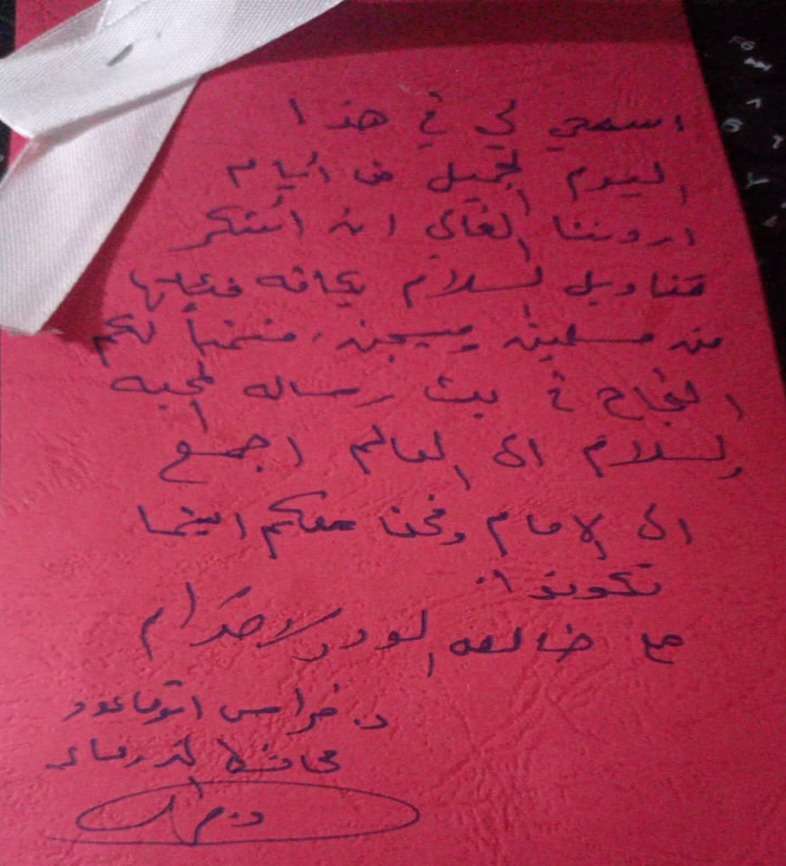 اسمحي لي في هذا
اليوم الجميل من أيام
اردننا الغالي ان أشكر
قناديل السلام بكافه
من مسلمين ومسيحين، متمنياً لكم
النجاح في بث رساله المحبه
والسلام الى العالم اجمع
الى الامام ونحن معكم اينما
تكونوا.
مع خالص الود والاحترام
د. فراس ابو قاعود
محافظ الزرقاء